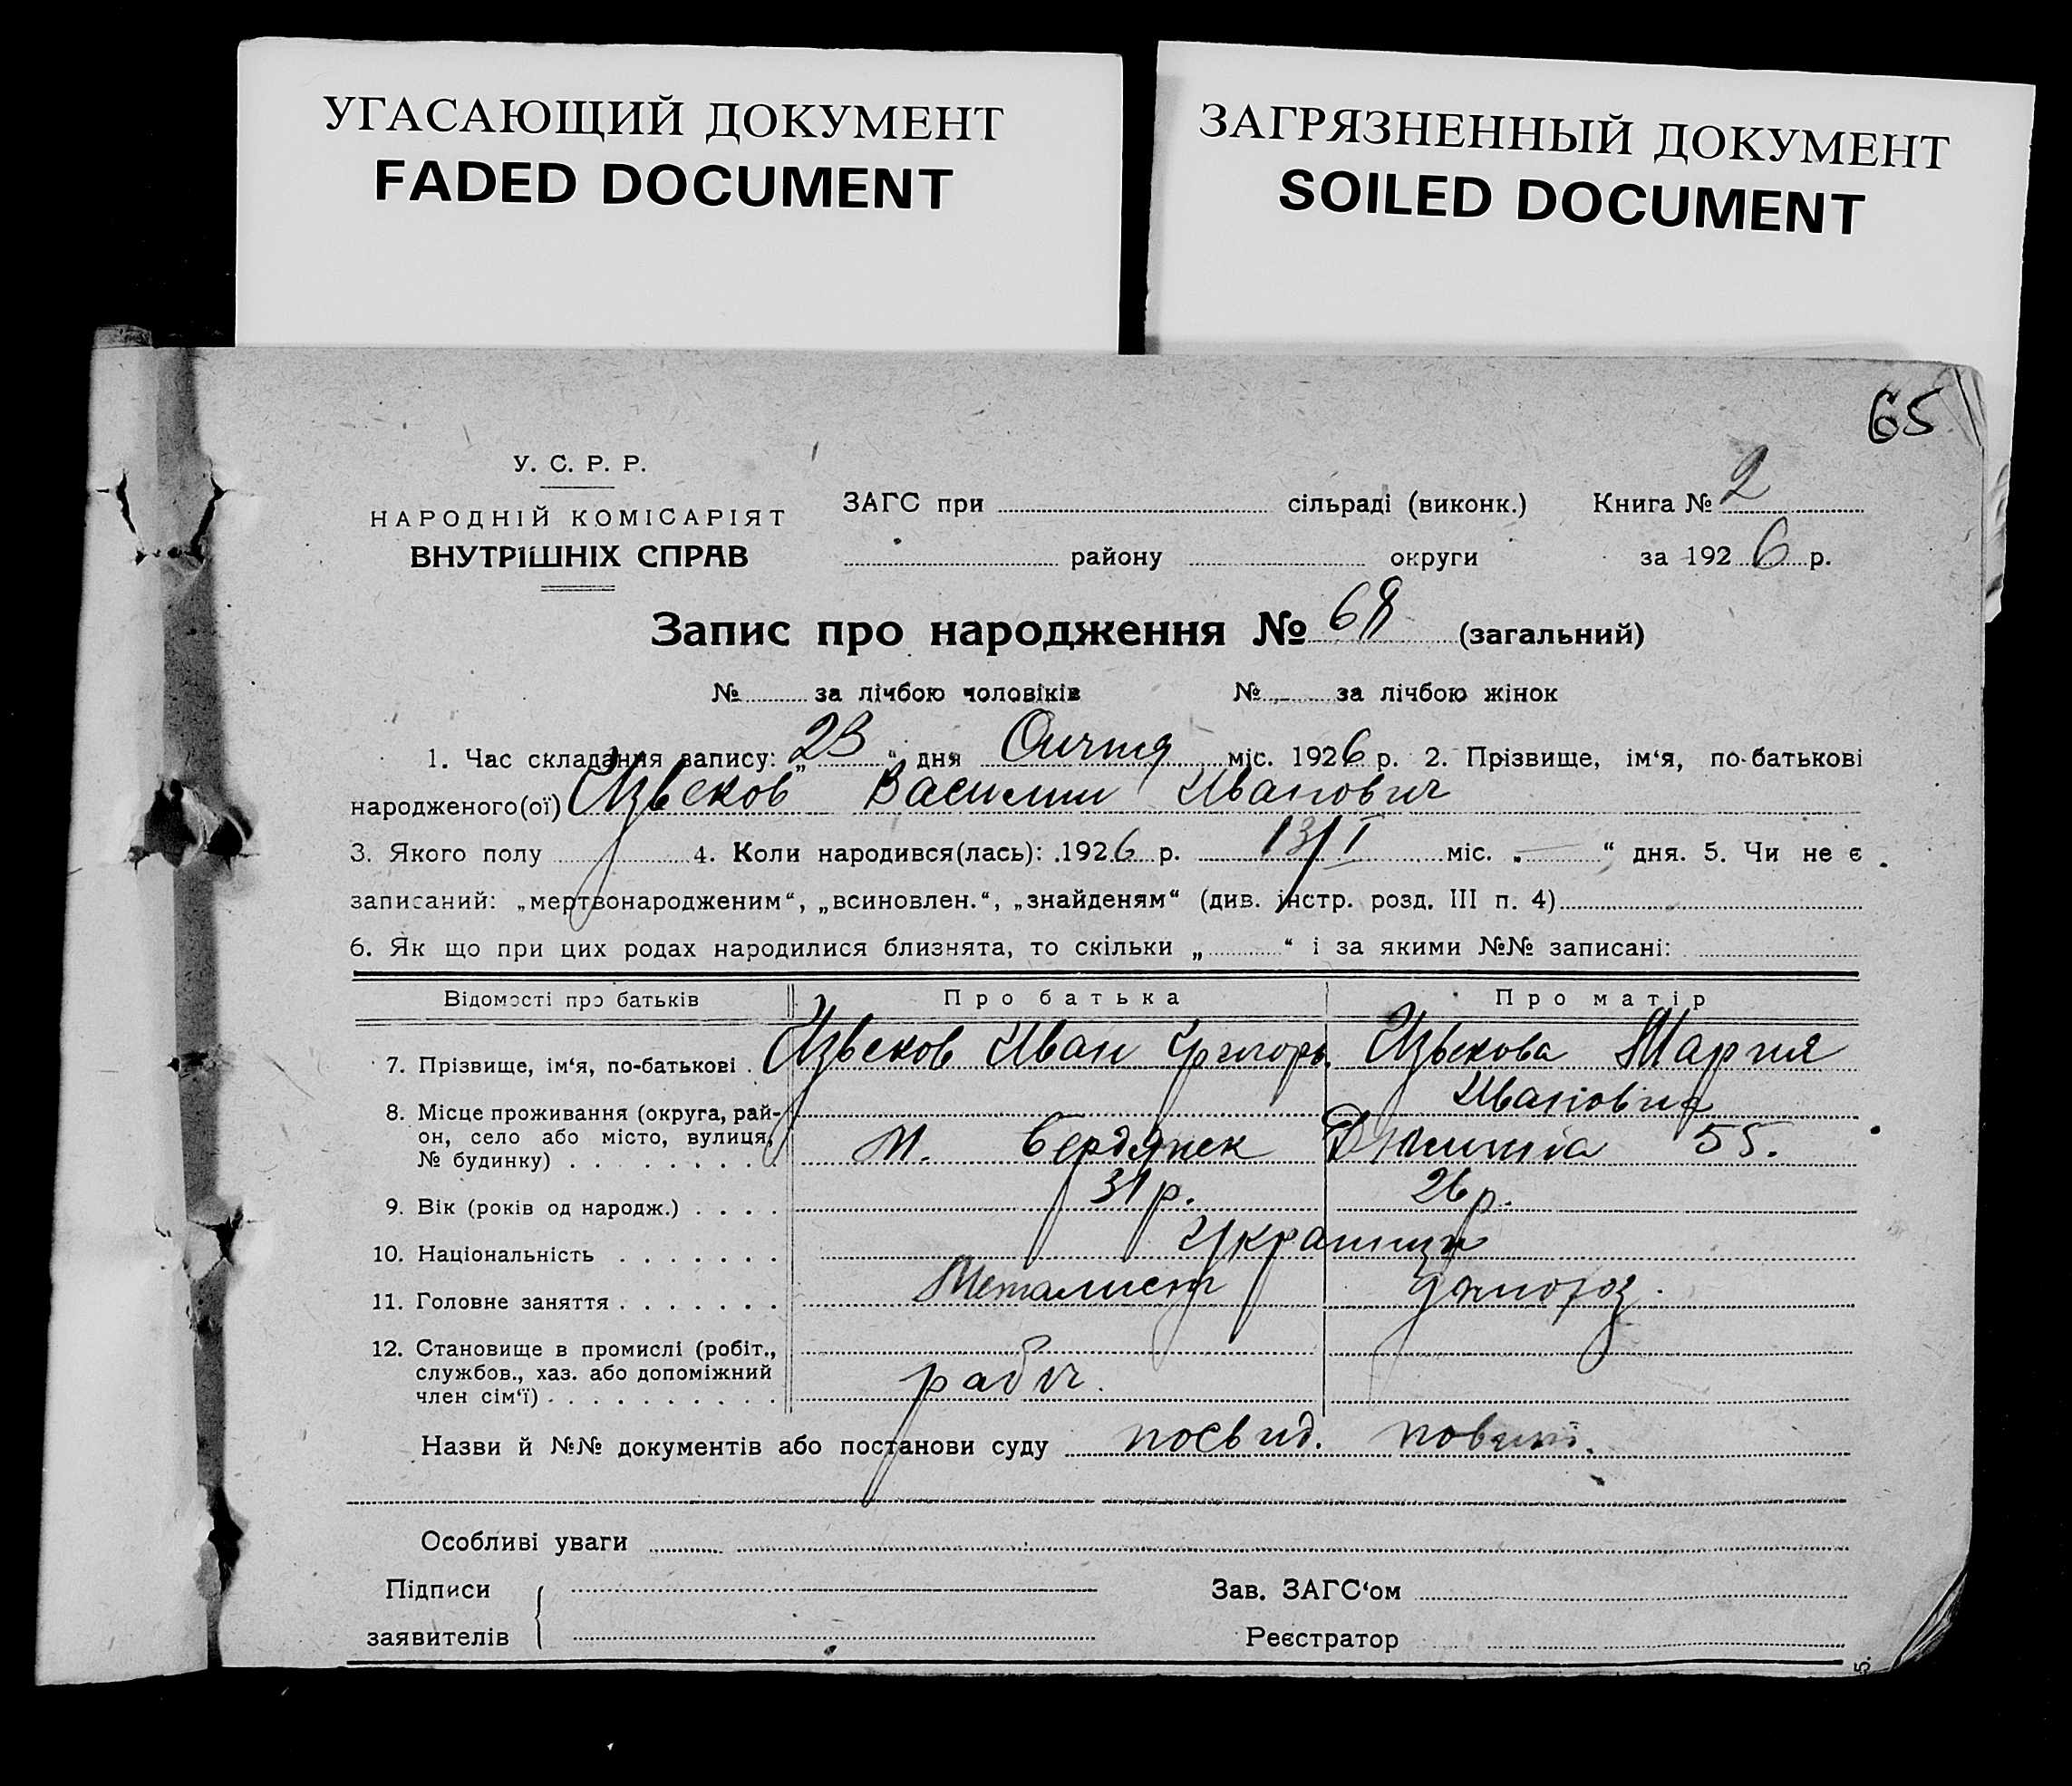 УГАСАЮЩИЙ ДОКУМЕНТ
FADED DOCUMENT
ЗАГРЯЗНЕННЫЙ ДОКУМЕНТ
SOILED DOCUMENT
65
У. С. Р. Р.
НАРОДНІЙ КОМІСАРІЯТ
ВНУТРІШНІХ СПРАВ
ЗАГС при сільраді (виконк.) Книга № 2
району округи за 1926 р.
Запис про народження № (загальний)
№ за лічбою чоловіків № за лічбою жінок
1. Час складання запису: „23“ дня міс. 1926 р. 2. Прізвище, ім‘я, по-батькові
народженого(ої) Извеков Василий Иванович
3. Якого полу 4. Коли народився(лась): 1926 р. 13/I міс. „—“ дня. 5. Чи не є
записаний: „мертвонародженим“, „всиновлен.“, „знайденям“ (див. інстр. розд. III п. 4)
6. Як що при цих родах народилися близнята, то скільки „ “ і за якими №№ записані:
Відомості про батьків Про батька Про матір
7. Прізвище, ім‘я, по-батькові Извеков Иван Григорь. Извекова Мария
Ивановна
8. Місце проживання (округа, рай-
он, село або місто, вулиця,
№ будинку) м. Бердянск 55.
9. Вік (років од народж.) 31 р. 26 р.
10. Національність Украинцы
11. Головне заняття Металист домогоз.
12. Становище в промислі (робіт.,
службов., хаз. або допоміжний
член сім‘ї) рабоч.
Назви й №№ документів або постанови суду посвид.
Особливі уваги
Підписи
заявителів
Зав. ЗАГС‘ом
Реєстратор
5.